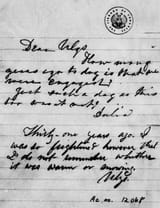 Dear Ulys
How many
years ago to day is that we
were engaged?
Just such a day as this
too was it not?
Julia
Thirty-one years ago. I
was so frightened however that
I do not remember whether
it was warm or snowing.
Ulys
Ac. no. 12068